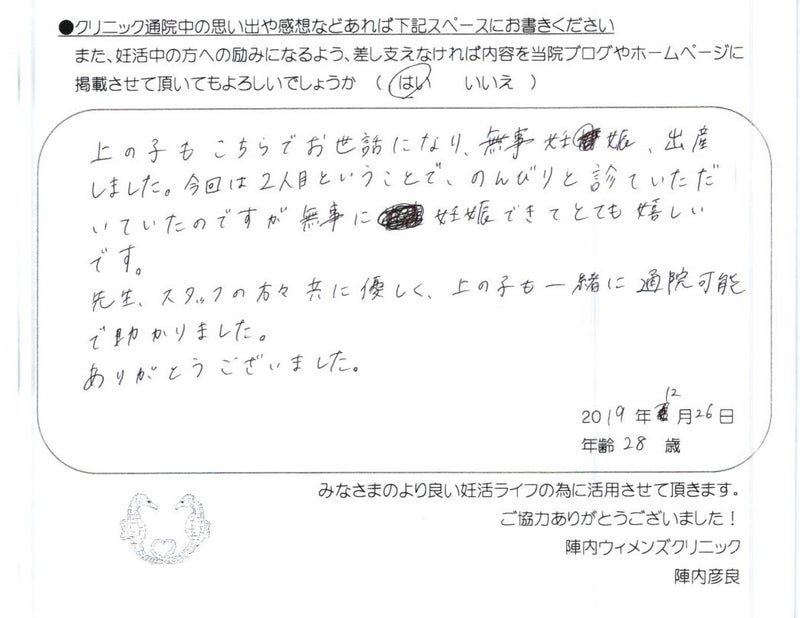 ●クリニック通院中の思い出や感想などあれば下記スペースにお書きください
また、妊活中の方への励みになるよう、差し支えなければ内容を当院ブログやホームページに
掲載させて頂いてもよろしいでしょうか （ はい いいえ ）
上の子もこちらでお世話になり、無事妊娠、出産
しました。今回は2人目ということで、のんびりと診ていただ
いていたのですが無事に妊娠できてとても嬉しい
です。
先生、スタッフの方々共に優しく、上の子も一緒に通院可能
で助かりました。
ありがとうございました。
2019年12月26日
年齢 28 歳
みなさまのより良い妊活ライフの為に活用させて頂きます。
ご協力ありがとうございました！
陣内ウィメンズクリニック
陣内彦良